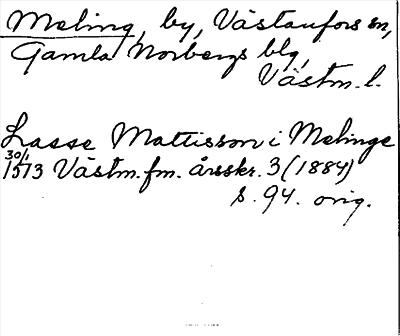 Meling, by, Västanfors sn,
Gamla Norbergs blg,
Västm. l.
Lasse Mattisson i Melinge
30/1
1573 Västm. fm. årsskr. 3 (1884)
s. 94. orig.